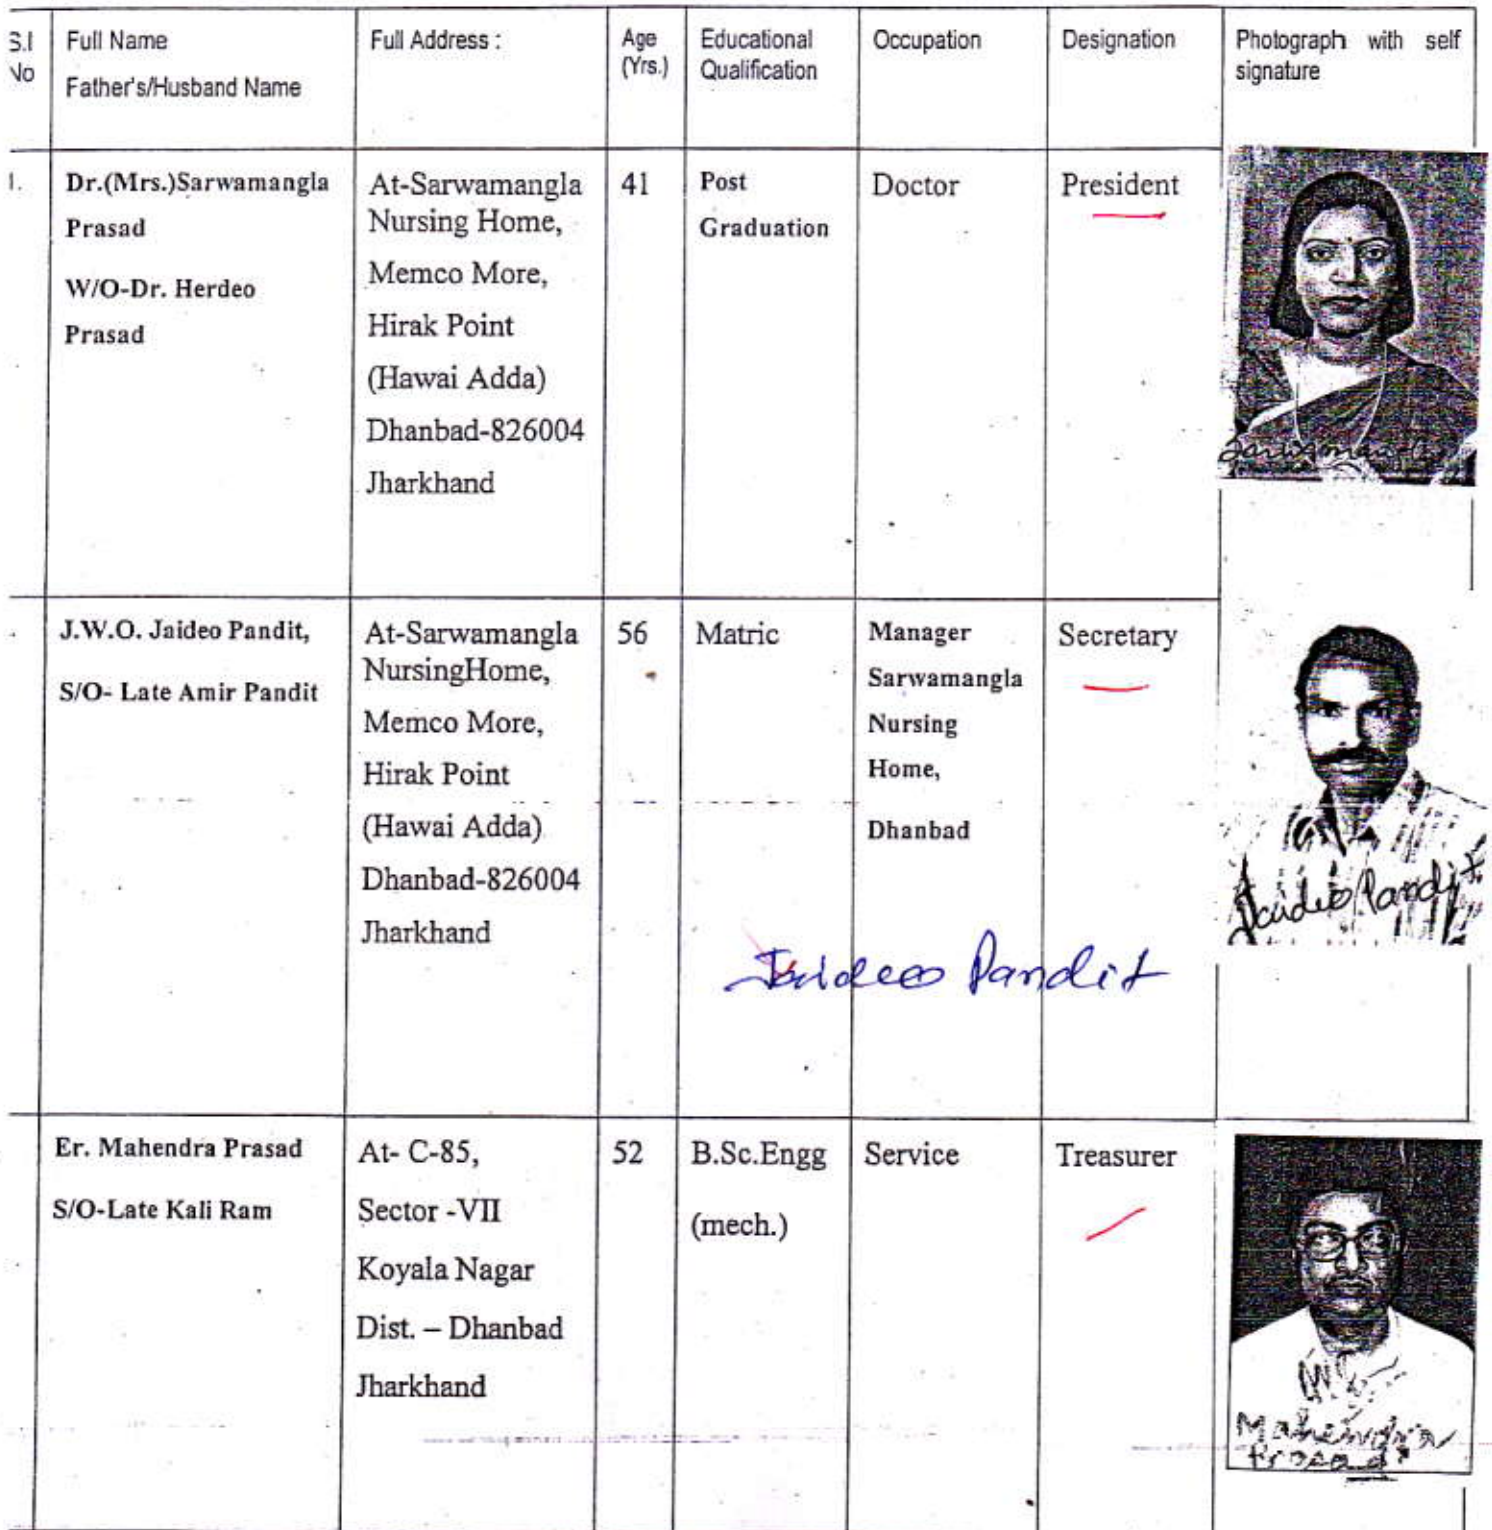 S.I No
Full Name
Father's/Husband Name
Full Address :
Age
(Yrs.)
Educational
Qualification
Occupation
Designation
Photograph with self
signature
1.
Dr.(Mrs.)Sarwamangla
Prasad
W/O-Dr. Herdeo
Prasad
At-Sarwamangla
Nursing Home,
Memco More,
Hirak Point
(Hawai Adda)
Dhanbad-826004
Jharkhand
41
Post
Graduation
Doctor
President
J.W.O. Jaideo Pandit,
S/O- Late Amir Pandit
At-Sarwamangla
NursingHome,
Memco More,
Hirak Point
(Hawai Adda)
Dhanbad-826004
Jharkhand
56
Matric
Manager
Sarwamangla
Nursing
Home,
Dhanbad
Secretary
Jaideo Pandit
Jaideo Pandit
Er. Mahendra Prasad
S/O-Late Kali Ram
At- C-85,
Sector -VII
Koyala Nagar
Dist. – Dhanbad
Jharkhand
52
B.Sc.Engg
(mech.)
Service
Treasurer
Mahendra
Prasad